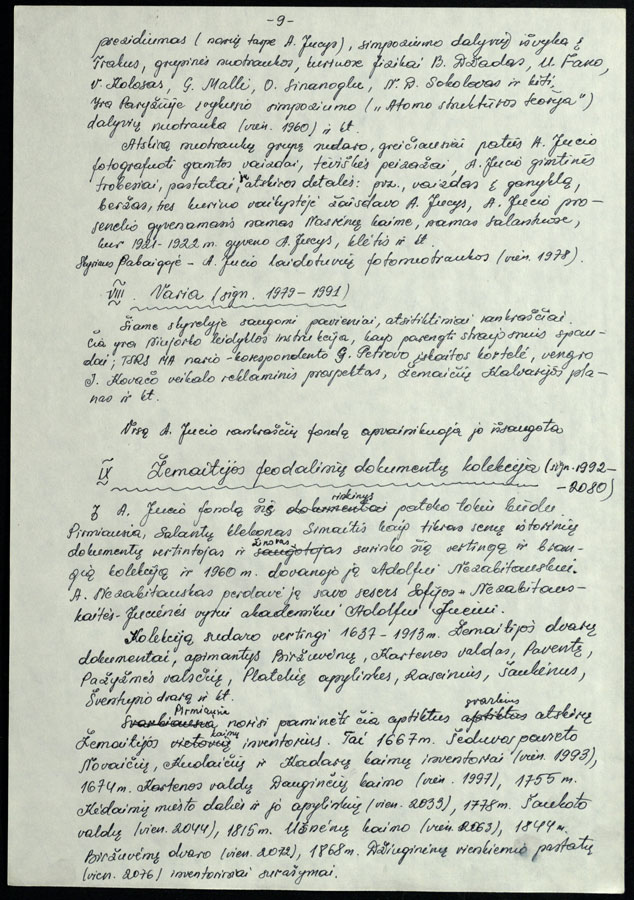 -9-
prezidiumas (narių tarpe A. Jucys), simpoziumo dalyvių išvyka į
Trakus, grupinės nuotraukos, kuriose fizikai B. Džadas, U. Fano,
V. Kolosas, G. Malli, O. Sinanoglu, N. D. Sokolovas ir kiti,
Yra Paryžiuje įvykusio simpoziumo ("Atomo struktūros teorija")
dalyvių nuotrauka (vien. 1960) ir kt.
Atskirą nuotraukų grupę sudaro, greičiausiai paties A. Jucio
fotografuoti gamtos vaizdai, tėviškės peizažai, A. Jucio gimtinės
trobesiai, pastatai, atskiros detalės: pvz., vaizdas į ganyklą,
beržas, ties kuriuo vaikystėje žaisdavo A. Jucys, A. Jucio pro-
senelio gyvenamasis namas Nasrėnų kaime, namas Salantuose,
kur 1921-1922 m. gyveno A. Jucys, klėtis ir kt.
Skyriaus Pabaigoje - A. Jucio laidotuvių fotonuotraukos (vien. 1978).
VIII. Varia (sign. 1979-1991)
Šiame skyrelyje saugomi pavieniai, atsitiktiniai rankraščiai.
Čia yra Niujorko leidyklos instrukcija, kaip parengti straipsnius spau-
dai; TSRS MA nario-korespondento G. Petrovo įskaitos kortelė, vengro
I. Kovačo veikalo reklaminis prospektas, Žemaičių Kalvarijos pla-
nas ir kt.
Visą A. Jucio rankraščių fondą apvainikuoja jo išsaugota
IX Žemaitijos feodalinių dokumentų kolekcija (sign. 1992-
-2080)
rinkinys
Į A. Jucio fondą šis dokumentai pateko tokiu būdu.
Pirmiausia, Salantų klebonas Simaitis kaip tikras senų istorinių
žinovas
dokumentų vertintojas ir saugotojas surinko šią vertingą ir bran-
gią kolekciją ir 1960 m. dovanojo ją Adolfui Nezabitauskui.
A. Nezabitauskas perdavė ją savo sesers Sofijos Nezabitaus-
kaitės-Jucienės vyrui akademikui Adolfui Juciui.
Kolekciją sudaro vertingi 1637-1913 m. Žemaitijos dvarų
dokumentai, apimantys Biržuvėnų, Kartenos valdas, Paventų,
Pažyžmės valsčių, Platelių apylinkes, Raseinius, Šaukėnus,
Šventupio dvarą ir kt.
Pirmiausia svarbius
Svarbiausia norisi paminėti čia aptiktus aptiktus atskirų
kaimų
Žemaitijos vietovių inventorius. Tai 1667 m. Šeduvos pavieto
Novaičių, Kudaičių ir Kadarių kaimų inventoriai (vien. 1993),
1674 m. Kartenos valdų Dauginčių kaimo (vien. 1997), 1755 m.
Kėdainių miesto dalies ir jo apylinkių (vien. 2039), 1778 m. Šaukoto
valdų (vien. 2044), 1815 m. Užnėnų kaimo (vien. 2063), 1844 m.
Biržuvėnų dvaro (vien. 2072), 1868 m. Džiuginėnų vienkiemio pastatų
(vien. 2076) inventoriniai surašymai.